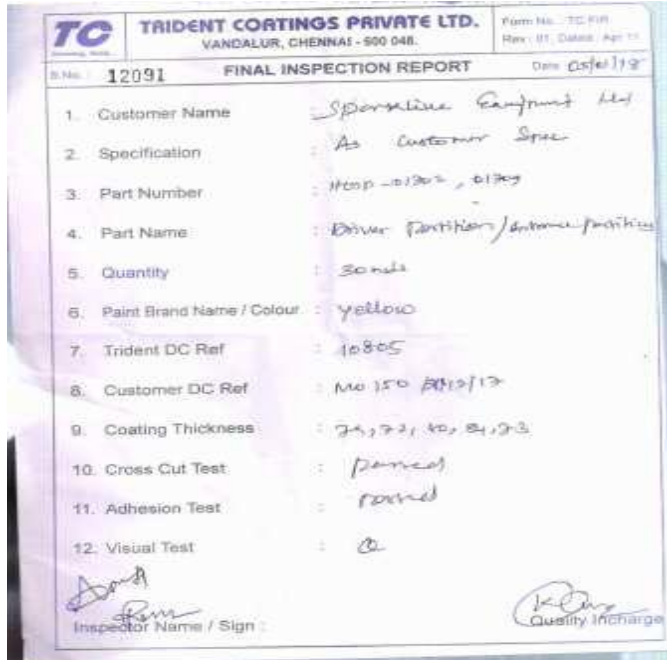 TC TRIDENT COATINGS PRIVATE LTD.
VANDALUR, CHENNAI - 600 048.
Form No.: TC FIR
Rev: 01, Dated: Apr 11
S.No.: 12091 FINAL INSPECTION REPORT Date
1. Customer Name :
2. Specification : As Customer Spec
3. Part Number :
4. Part Name : Driver Partition/
5. Quantity : 30
6. Paint Brand Name / Colour : yellow
7. Trident DC Ref : 10805
8. Customer DC Ref : Mo 150
9. Coating Thickness :
10. Cross Cut Test : passed
11. Adhesion Test : passed
12. Visual Test :
Inspector Name / Sign :
Quality Incharge